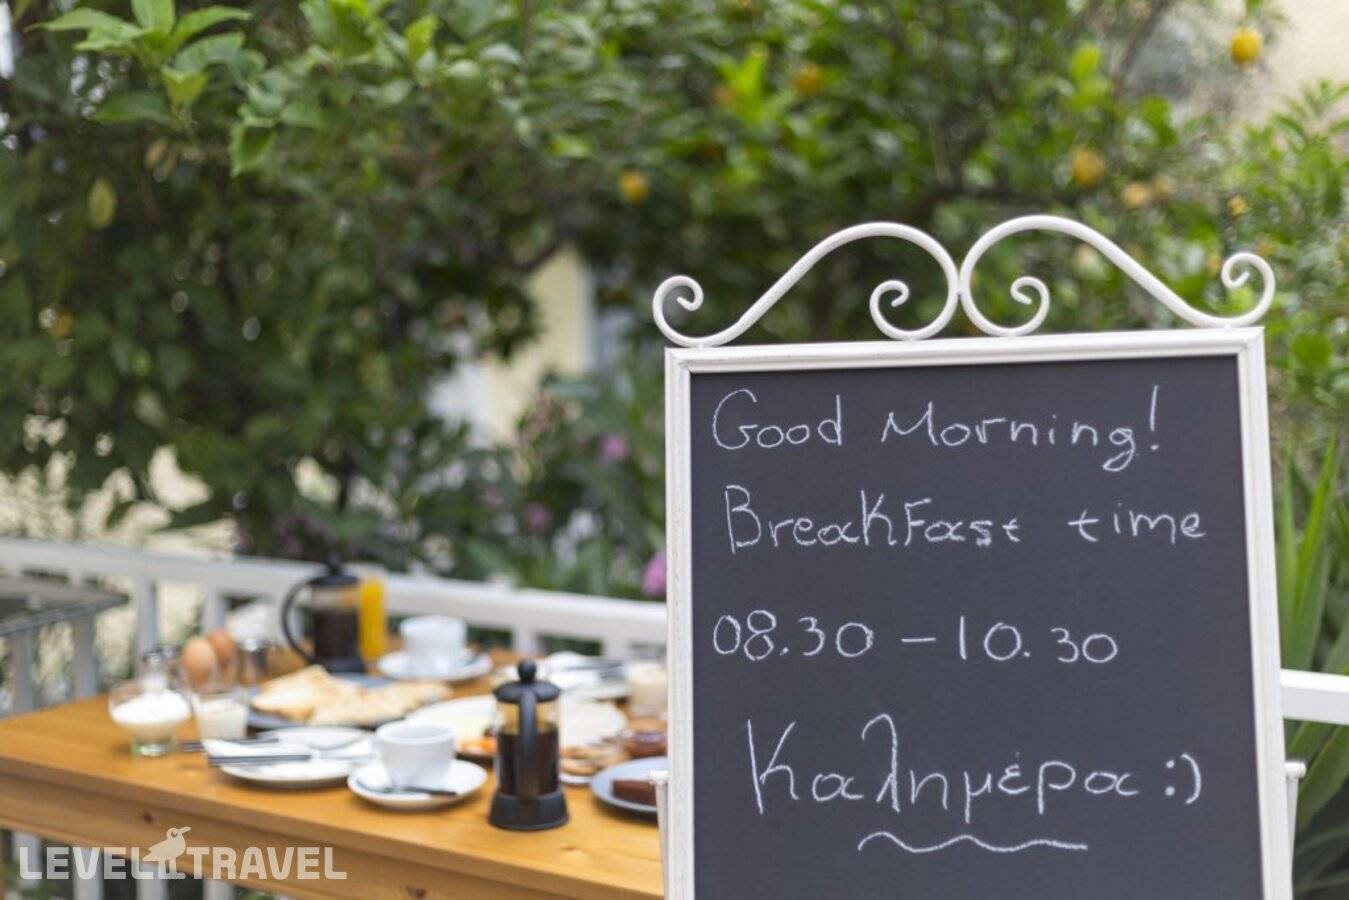 Good Morning!
BreakFast time
08.30 - 10.30
Καλημέρα :)
LEVEL TRAVEL